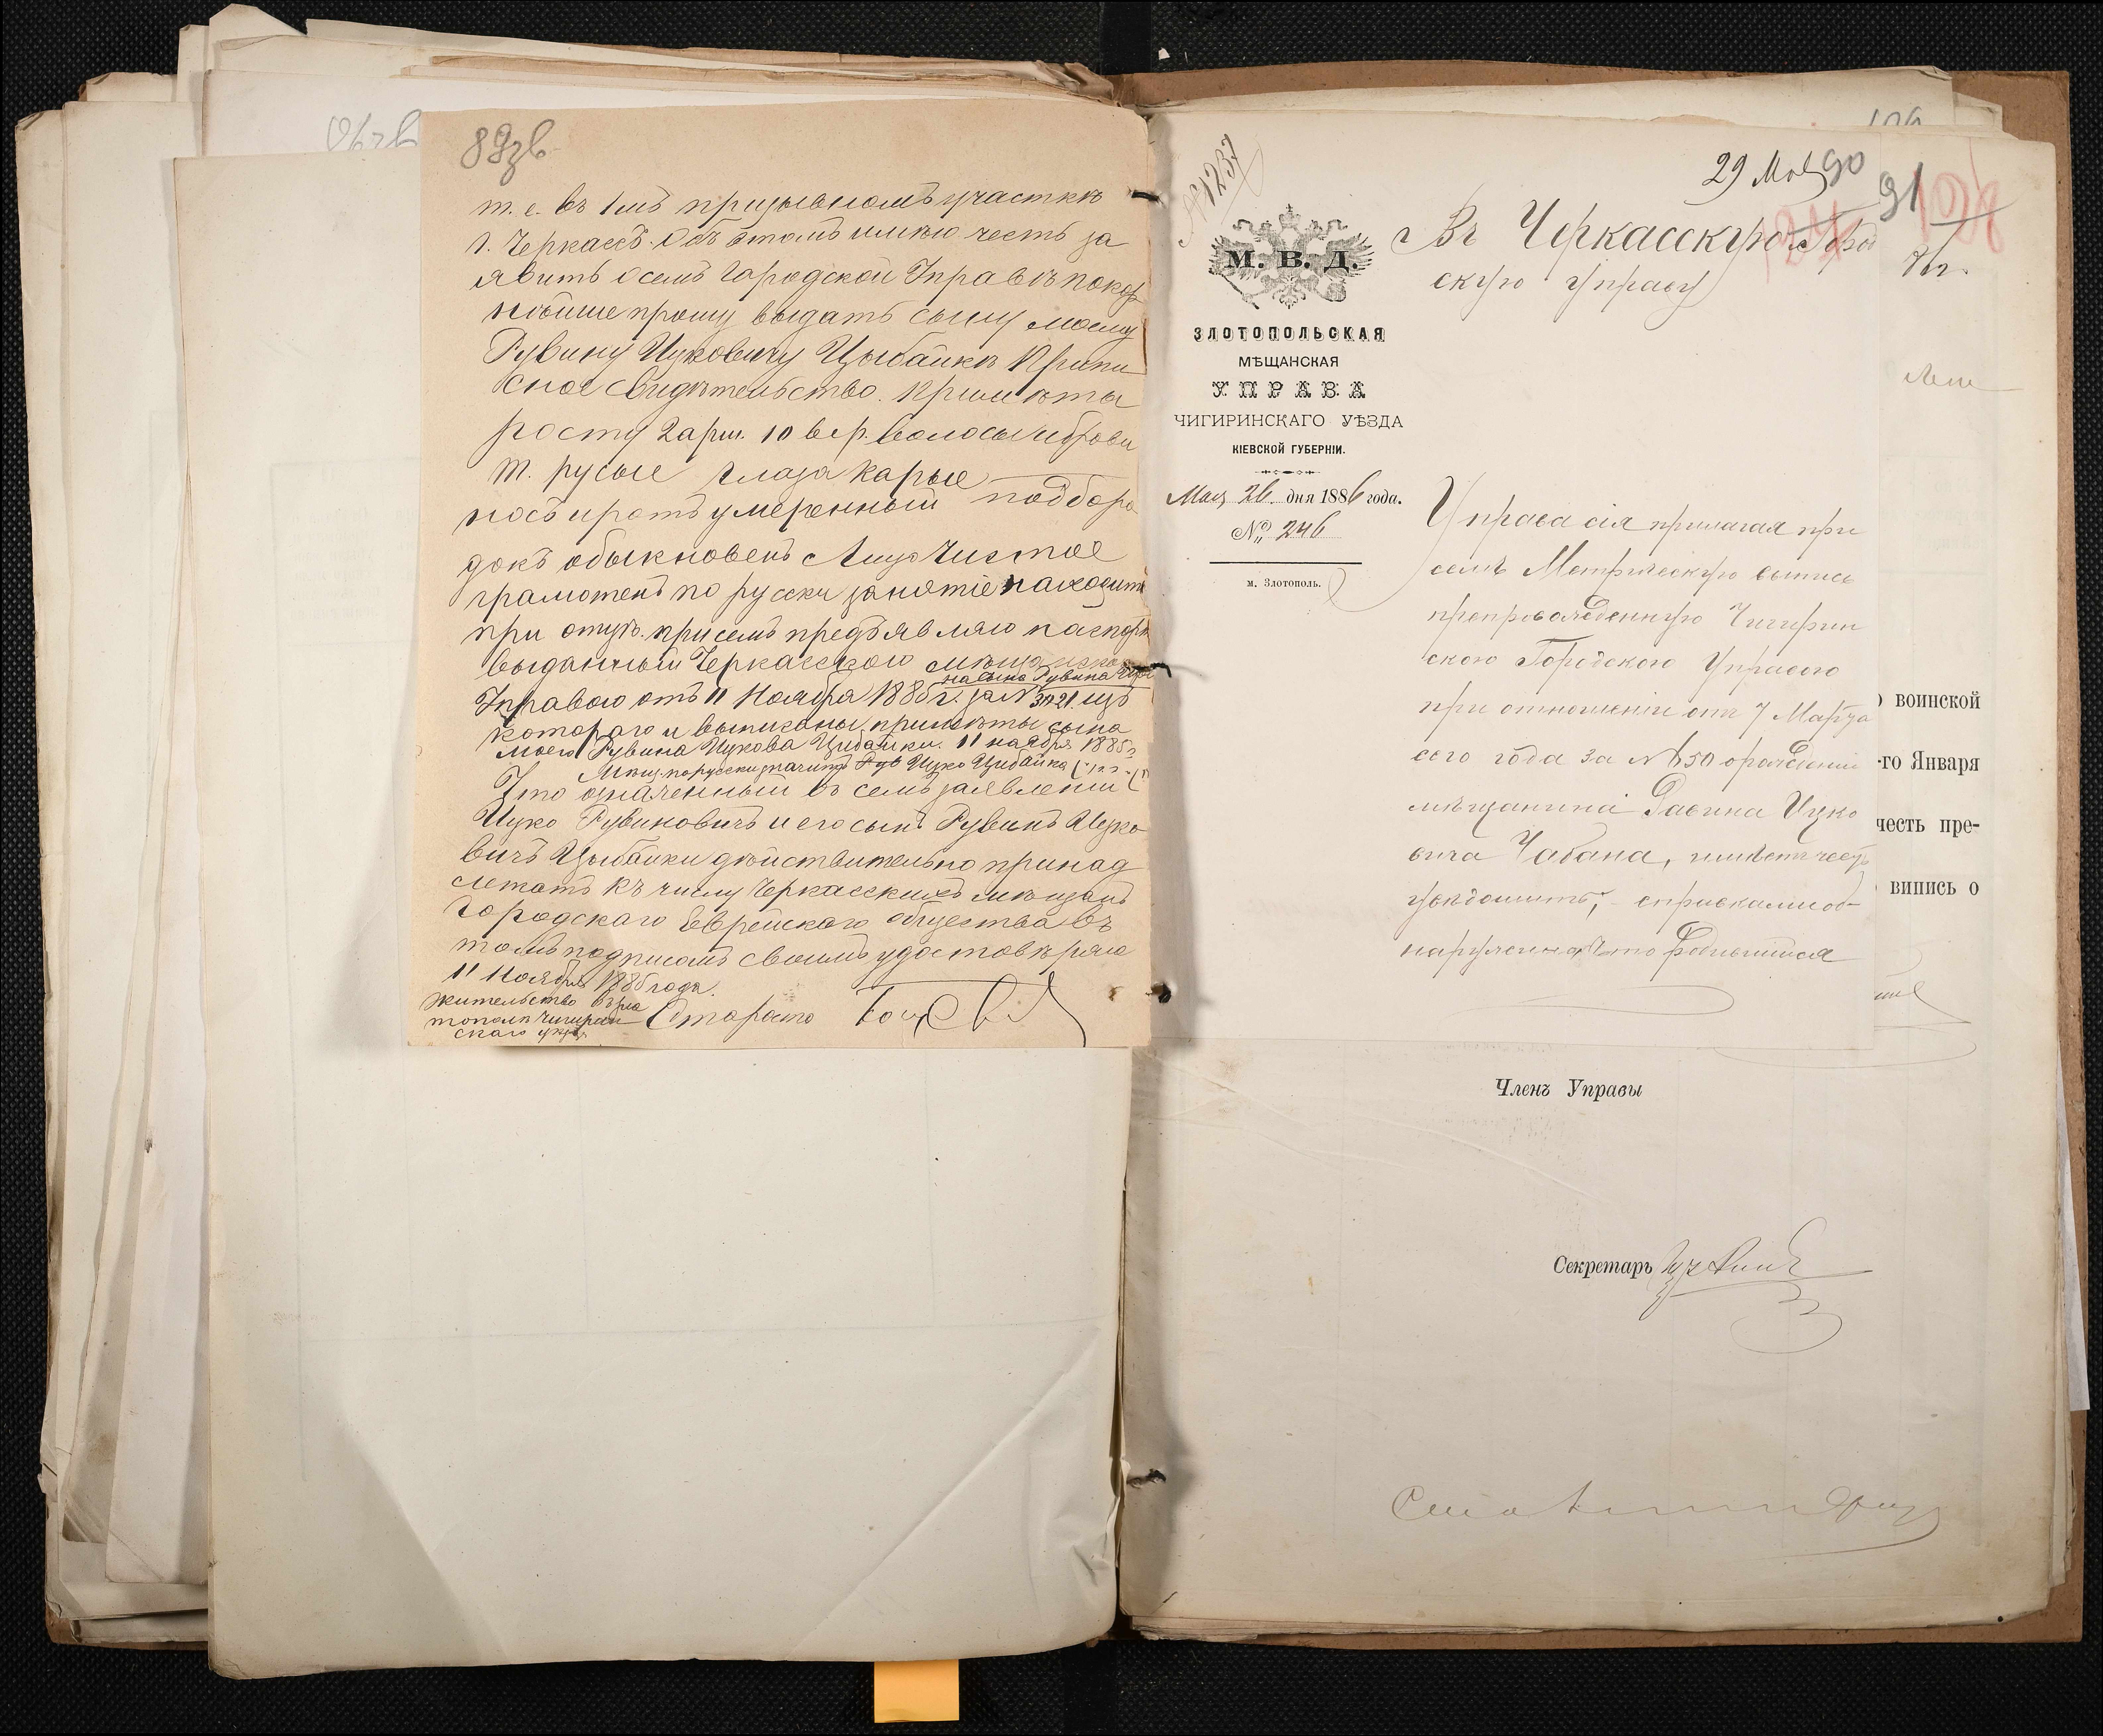 89зв
т. е. въ 1мъ призывномъ участкѣ
г. Черкассъ. Объ этомъ имѣю честь за
явить осемъ Городской Управѣ покор
нѣйше прошу выдать сыну моему
Рувину Ицковичу Цыбайкѣ Припи
сное свидѣтельство. Примѣты
росту 2 арш. 10 вер. волосы и брови
т. русые глаза карые
носъ и ротъ умеренный подборо
докъ обыкновенъ Лицо Чистое
грамотенъ по русски занятіе находится
при отцѣ. при семъ предъявляю паспортъ
выданный Черкасскою мѣщанскою
на сына Рувина
Управою отъ 11 Ноября 1885 г. за № 3721 изъ
котораго и выписаны примѣты сына
моего Рувина Ицкова Цибайки. 11 ноября 1885 г
Мѣщ. по русски значитъ Ицко Цибайка
Что означенный въ семъ заявленіи
Ицко Рувиновичъ и его сынъ Рувинъ Ицко
вичъ Цыбайки дѣйствительно принад
лежатъ къ числу Черкасскихъ мѣщанъ
Городскаго Еврейскаго общества въ
томъ подписомъ своимъ удостовѣряю
11 Ноября 1885 года.
жительство въ Зла
тополѣ Чигирин
скаго уѣзд.
Староста
№ 1237
29 Мая 90
91
Въ Черкасскую Город
скую управу
М. В. Д.
ЗЛОТОПОЛЬСКАЯ
МѢЩАНСКАЯ
УПРАВА
ЧИГИРИНСКАГО УѢЗДА
КІЕВСКОЙ ГУБЕРНІИ.
Мая 26 дня 1886 года.
№ 246
м. Злотополь.
Управа сія прилагая при
семъ Метрическую выпись
препровожденную Чигирин
скою Городскою Управою
при отношеніи отъ 7 Марта
сего года за № 50 орожденіи
мѣщанина Равина Ицко
вича Чабана, имѣетъ честь
увѣдомить, справками об-
наружено что родившійся
воинской
-го Января
честь пре-
випись о
Членъ Управы
Секретарь